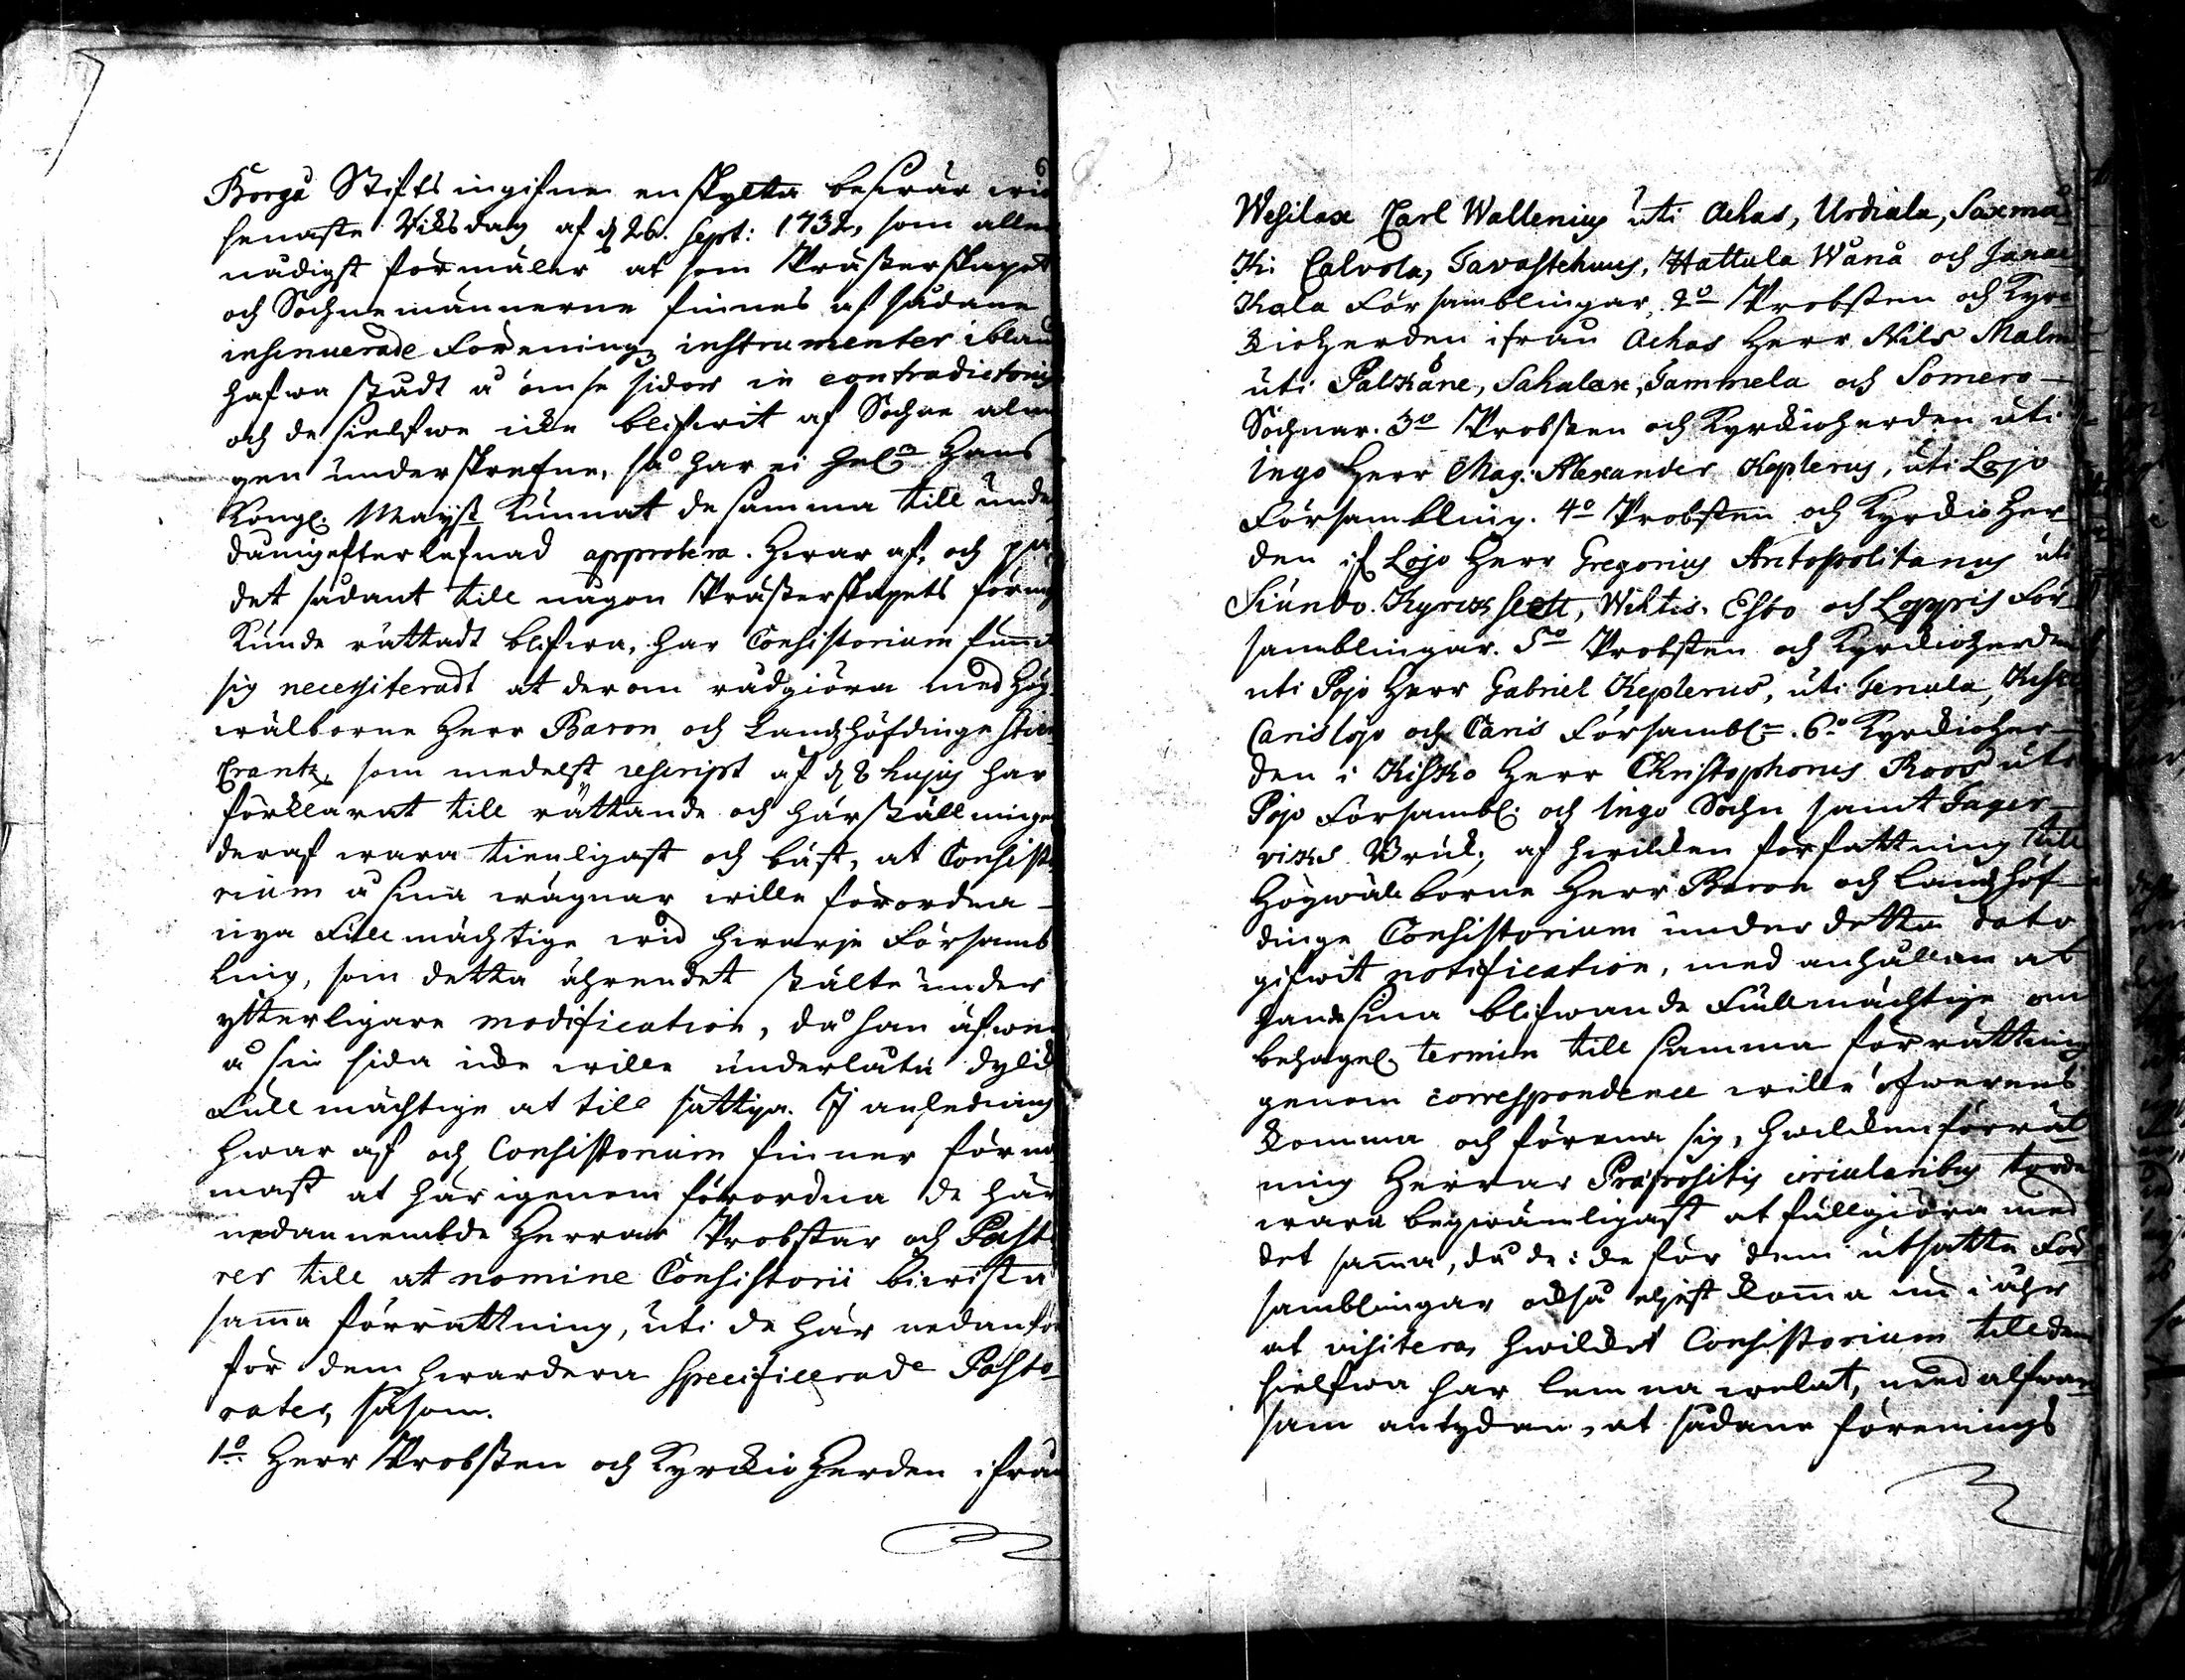 Borgå Stifts ingifne enskylta beswär wid
senaste Riksdag af d 26. Sept: 1732, som aller
nådigst förmäler at som Prästerskapet
och Sochnemännerne finnes af sådane
insinuerade Förenings instrumenter ibland
hafwa stådt å ömse sidor in contradictoriis
och de sielfwe icke blifwit af Sochne alm
gen underskrefne, så har ei hel:r Hans
Kongl. Mayst kunnat desamma till under
dånig efterlefnad approbera. Hwar af, och på
det sådant till någon Prästerskapets förnöy
kunde rättadt blifwa, har Consistorium funnit
sig necessiteradt at derom rådgiöra med Hög
wälborne Herr Baron och Landzhöfdinge Stiern
Crantz, som medelst rescript af d 8 hujus har
förklarat till rättande och härställningen
deraf wara tienligast och bäst, at Consisto
rium å sina wägnar wille förordna
nya Fullmächtige wid hwarje Försam
ling, som detta ährendet stälte under
ytterligare modification, då han äfwen
å sin sida icke wille underlåta dylik
Fullmächtige at till sättia. I anledning
hwar af och Consistorium finner förnöd
mast at här igenom förordna de här
nedannembde Herrar Probstar och Pasto
res till at nomine Consistorii biwista
samma förrättning, uti de här nedanför
för dem hwardera specificerade Pasto
rater, såsom.
1o. Herr Probsten och Kyrckio Herden ifrån
Wesilax Carl Wallenius uti Achas, Urdiala, Saxmä
Ki Calvola, Tavastehuus, Hattula Wånå och Janac
Kala Församblingar, 2o Probsten och Kyr
kioherden ifrån Achas Herr Nils Malm
uti Palkåne, Sahalax, Tammela och Somero
Sochnar. 3o Probsten och Kyrkioherden uti
Ingo Herr Mag. Alexander Keplerus, uti Lojo
Försambling. 4o Probsten och Kyrckio Her
den if Lojo Herr Gregorius Arctopolitanus uti
Siundo. Kyrckslett, Wihtis. Esbo och Loppis För
samblingar. 5o Probsten och Kyrckioherden
uti Pojo Herr Gabriel Keplerus, uti Tenala, Kisko
Carislojo och Caris Försambl:r. 6o Kyrckioher
den i Kisko Herr Christophorus Roos uti
Pojo Försambl: och Ingo Sochn samt Fager
viks Bruk; af hwilken författning till
Högwälborne Herr Baron och Landzhöf
dinge Consistorium under detta dato
gifwit notification, med anhållan at
hans sina blifwande Fullmächtige om
behagel. termin till samma förrättning
genom correspondence wille öfwerens
komma och förena sig, hwilken förrätt
ning Herrar Præpositis circularibus torde
wara beqwämligast at fullgiöra med
det samma, då de i de för dem utsatte För
samblingar också eljest komma nu i åhr
at visitera, hwilket Consistorium till dem
sielfwa har lemna welat, med alfwar
sam antydan, at sådane förenings